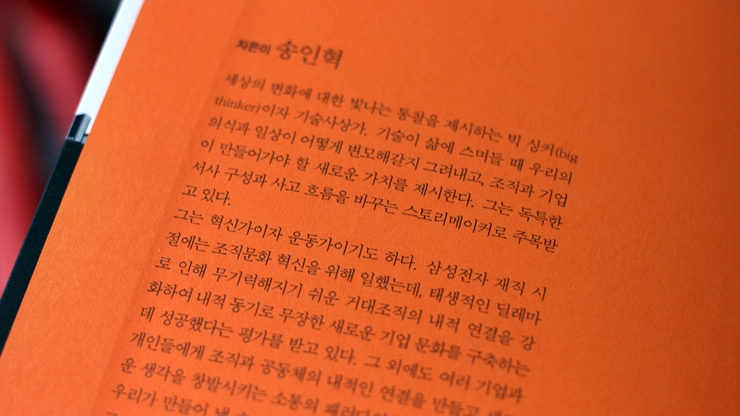 지은이 송인혁
세상의 변화에 대한 빛나는 통찰을 제시하는 빅 싱커(big
thinker)이자 기술사상가. 기술이 삶에 스며들 때 우리의
의식과 일상이 어떻게 변모해갈지 그려내고, 조직과 기업
이 만들어가야 할 새로운 가치를 제시한다. 그는 독특한
서사 구성과 사고 흐름을 바꾸는 스토리메이커로 주목받
고 있다.
그는 혁신가이자 운동가이기도 하다. 삼성전자 재직 시
절에는 조직문화 혁신을 위해 일했는데, 태생적인 딜레마
로 인해 무기력해지기 쉬운 거대조직의 내적 연결을 강
화하여 내적 동기로 무장한 새로운 기업 문화를 구축하는
데 성공했다는 평가를 받고 있다. 그 외에도 여러 기업과
개인들에게 조직과 공동체의 내적인 연결을 만들고 새
운 생각을 창발시키는 소통의 패러다임
우리가 만들어 낼